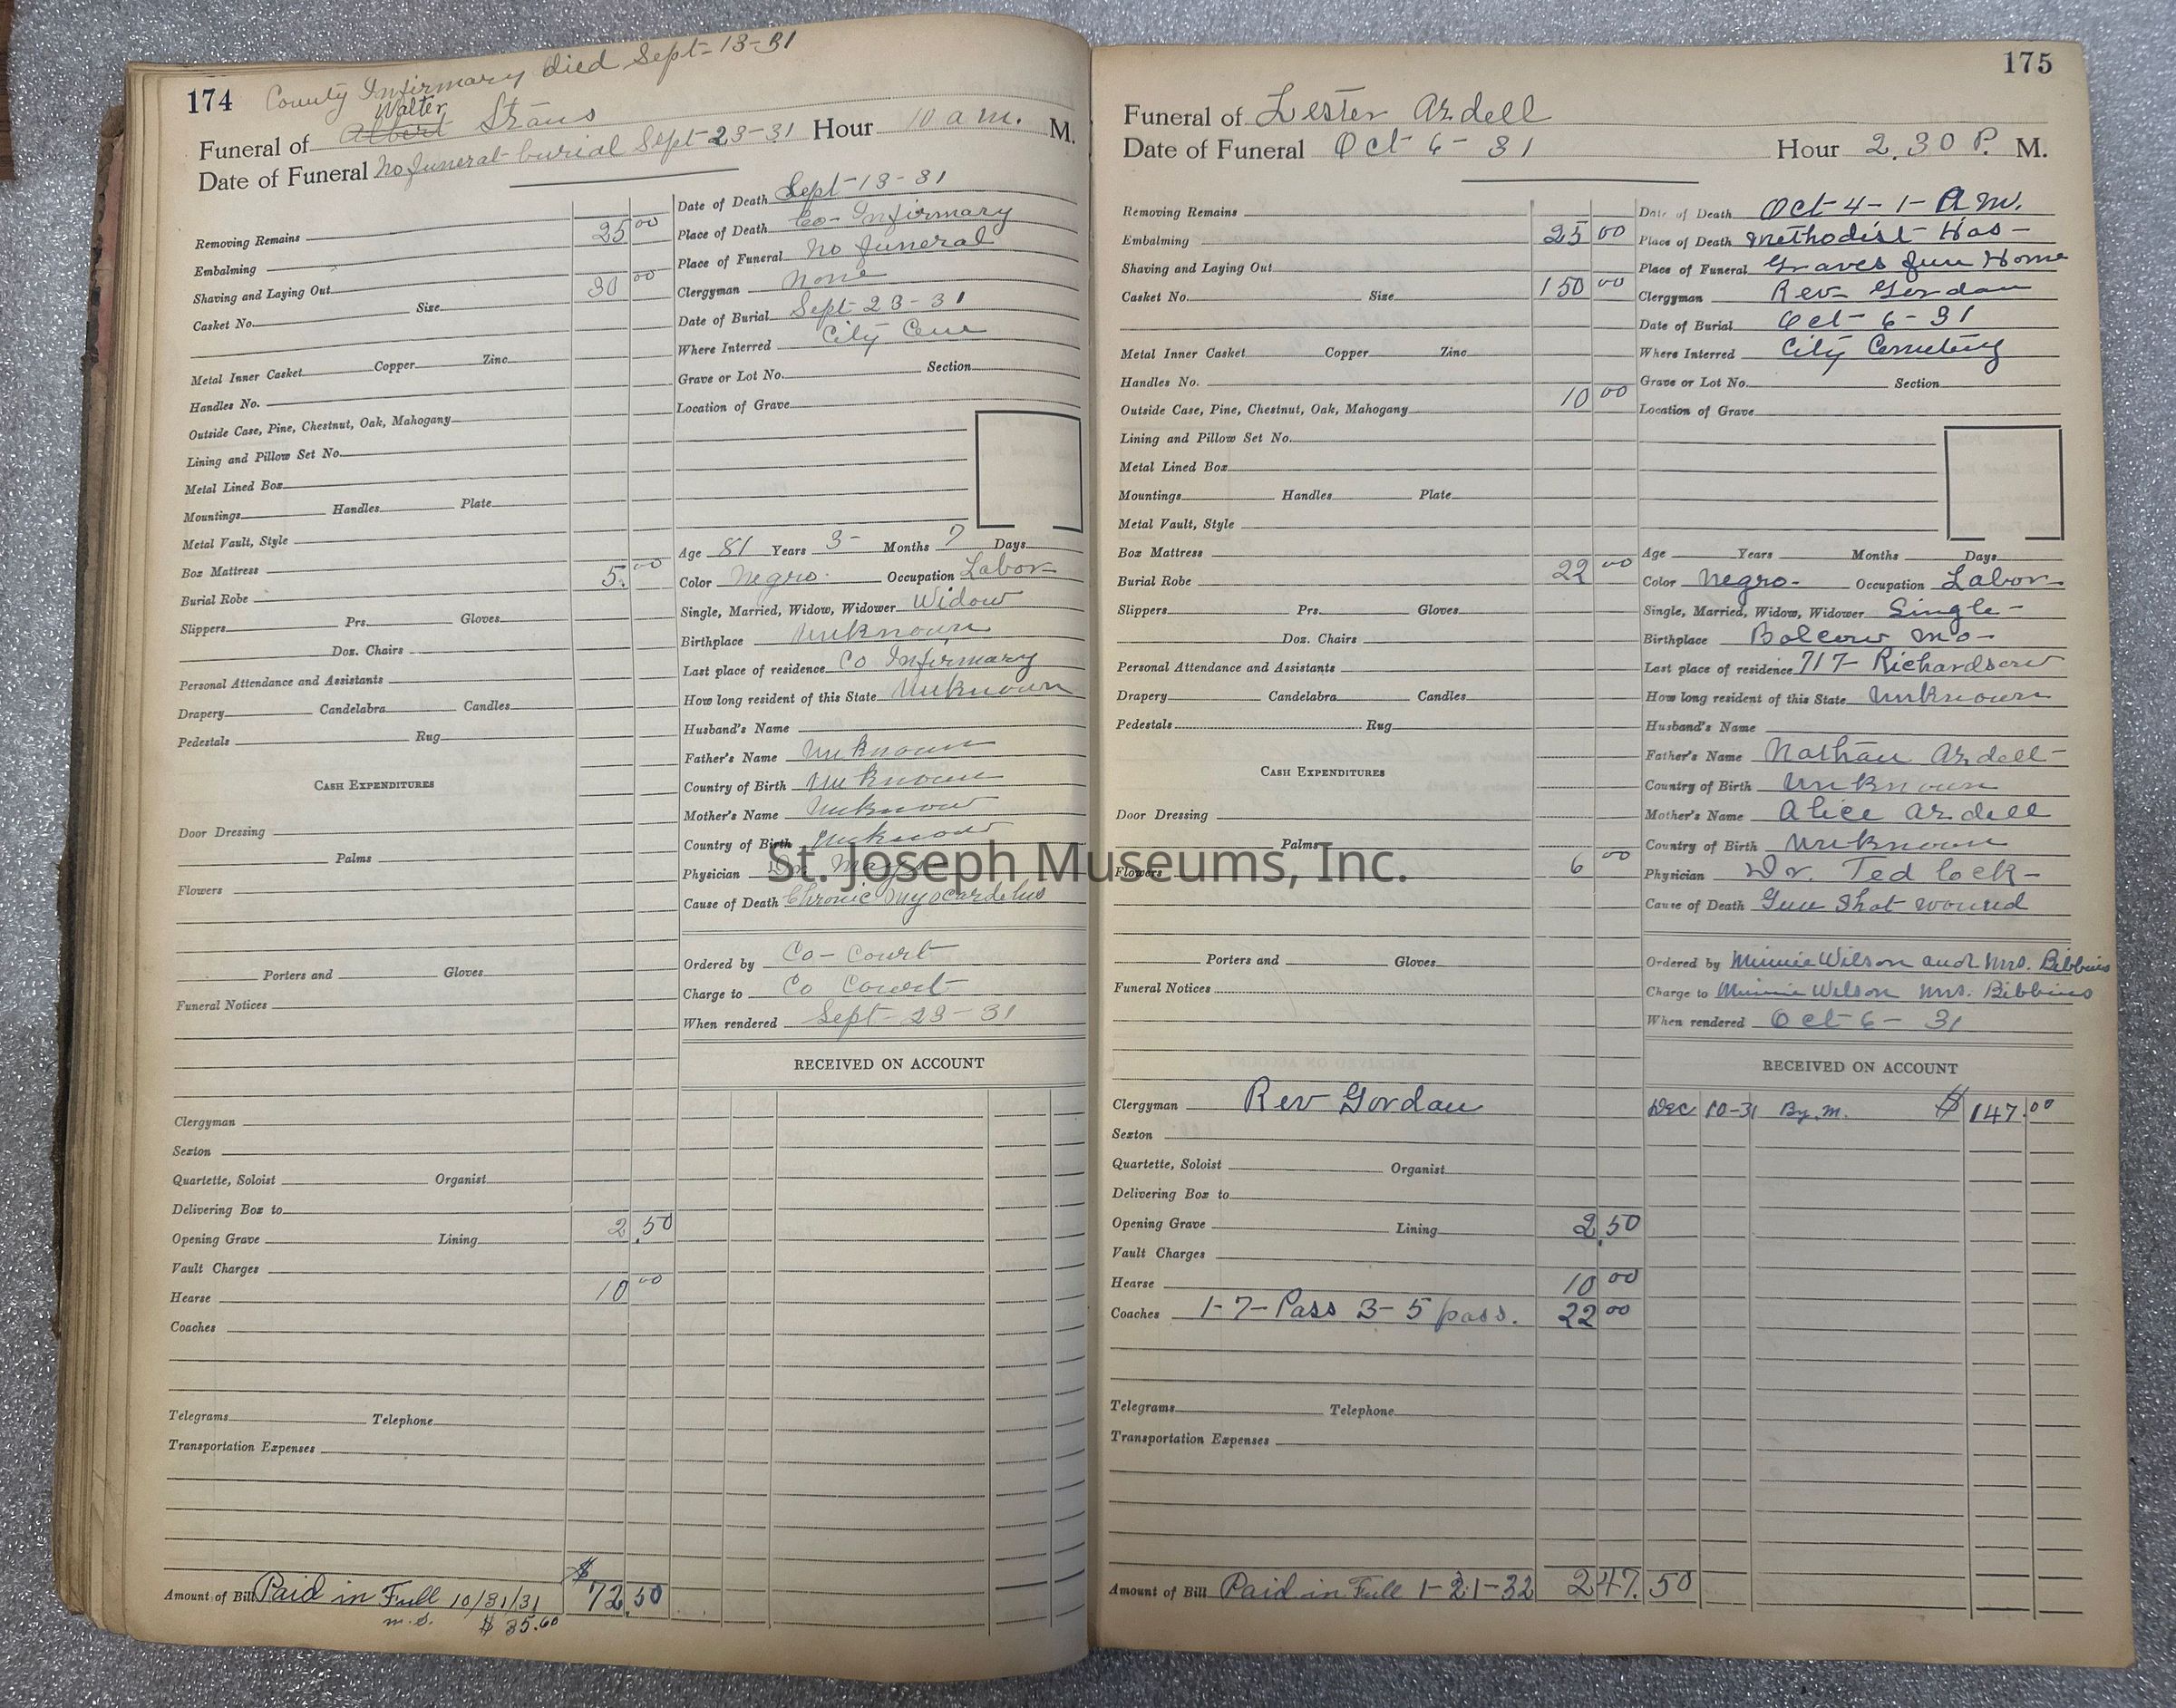 174 County Infirmary died Sept-13-31
Walter
Funeral of Albert Straus Hour 10 a m. M.
Date of Funeral No funeral burial Sept-23-31
Removing Remains 25 00
Embalming
Shaving and Laying Out 30 00
Casket No. Size
Metal Inner Casket Copper Zinc
Handles No.
Outside Case, Pine, Chestnut, Oak, Mahogany
Lining and Pillow Set No.
Metal Lined Box
Mountings Handles Plate
Metal Vault, Style
Box Mattress 5. 00
Burial Robe
Slippers Prs. Gloves
Doz. Chairs
Personal Attendance and Assistants
Drapery Candelabra Candles
Pedestals Rug
CASH EXPENDITURES
Door Dressing
Palms
Flowers
Porters and Gloves
Funeral Notices
Clergyman
Sexton
Quartette, Soloist Organist
Delivering Box to
Opening Grave Lining 2.50
Vault Charges
Hearse 10 00
Coaches
Telegrams Telephone
Transportation Expenses
Amount of Bill Paid in Full 10/31/31 $72.50
m.s. $35.60
Date of Death Sept-13-31
Place of Death Co-Infirmary
Place of Funeral No funeral
Clergyman None
Date of Burial Sept 23-31
Where Interred City Cem
Grave or Lot No. Section
Location of Grave
Age 81 Years 3- Months 7 Days
Color Negro. Occupation Labor
Single, Married, Widow, Widower Widow
Birthplace Unknown
Last place of residence Co Infirmary
How long resident of this State Unknown
Husband's Name
Father's Name Unknown
Country of Birth Unknown
Mother's Name Unknow
Country of Birth Unknow
Physician Dr.
Cause of Death Chronic Myocardetus
Ordered by Co-Court
Charge to Co Court
When rendered Sept-23-31
RECEIVED ON ACCOUNT
175
Funeral of Lester Ardell
Date of Funeral Oct-6-31 Hour 2.30 P. M.
Removing Remains
Embalming 25 00
Shaving and Laying Out
Casket No. Size 150 00
Metal Inner Casket Copper Zinc
Handles No.
Outside Case, Pine, Chestnut, Oak, Mahogany 10 00
Lining and Pillow Set No.
Metal Lined Box
Mountings Handles Plate
Metal Vault, Style
Box Mattress
Burial Robe 22 00
Slippers Prs. Gloves
Doz. Chairs
Personal Attendance and Assistants
Drapery Candelabra Candles
Pedestals Rug
CASH EXPENDITURES
Door Dressing
Palms
Flowers 6 00
Porters and Gloves
Funeral Notices
Clergyman Rev Gordan
Sexton
Quartette, Soloist Organist
Delivering Box to
Opening Grave Lining 2.50
Vault Charges
Hearse 10 00
Coaches 1-7-Pass 3-5 pass. 22 00
Telegrams Telephone
Transportation Expenses
Amount of Bill Paid in Full 1-21-32 247.50
Date of Death Oct-4-1-A M.
Place of Death Methodist Hos-
Place of Funeral Graves fun Home
Clergyman Rev- Gordan
Date of Burial Oct-6-31
Where Interred City Cemetery
Grave or Lot No. Section
Location of Grave
Age Years Months Days
Color Negro- Occupation Labor
Single, Married, Widow, Widower Single-
Birthplace Bolcow Mo-
Last place of residence 717- Richardson
How long resident of this State Unknown
Husband's Name
Father's Name Nathan Ardell-
Country of Birth Unknown
Mother's Name Alice Ardell
Country of Birth Unknown
Physician Dr. Ted lock-
Cause of Death Gun Shot wound
Ordered by Minnie Wilson and Mrs. Bibbins
Charge to Minnie Wilson Mrs. Bibbins
When rendered Oct-6-31
RECEIVED ON ACCOUNT
Dec 10-31 By. M. $147.00
St. Joseph Museums, Inc.